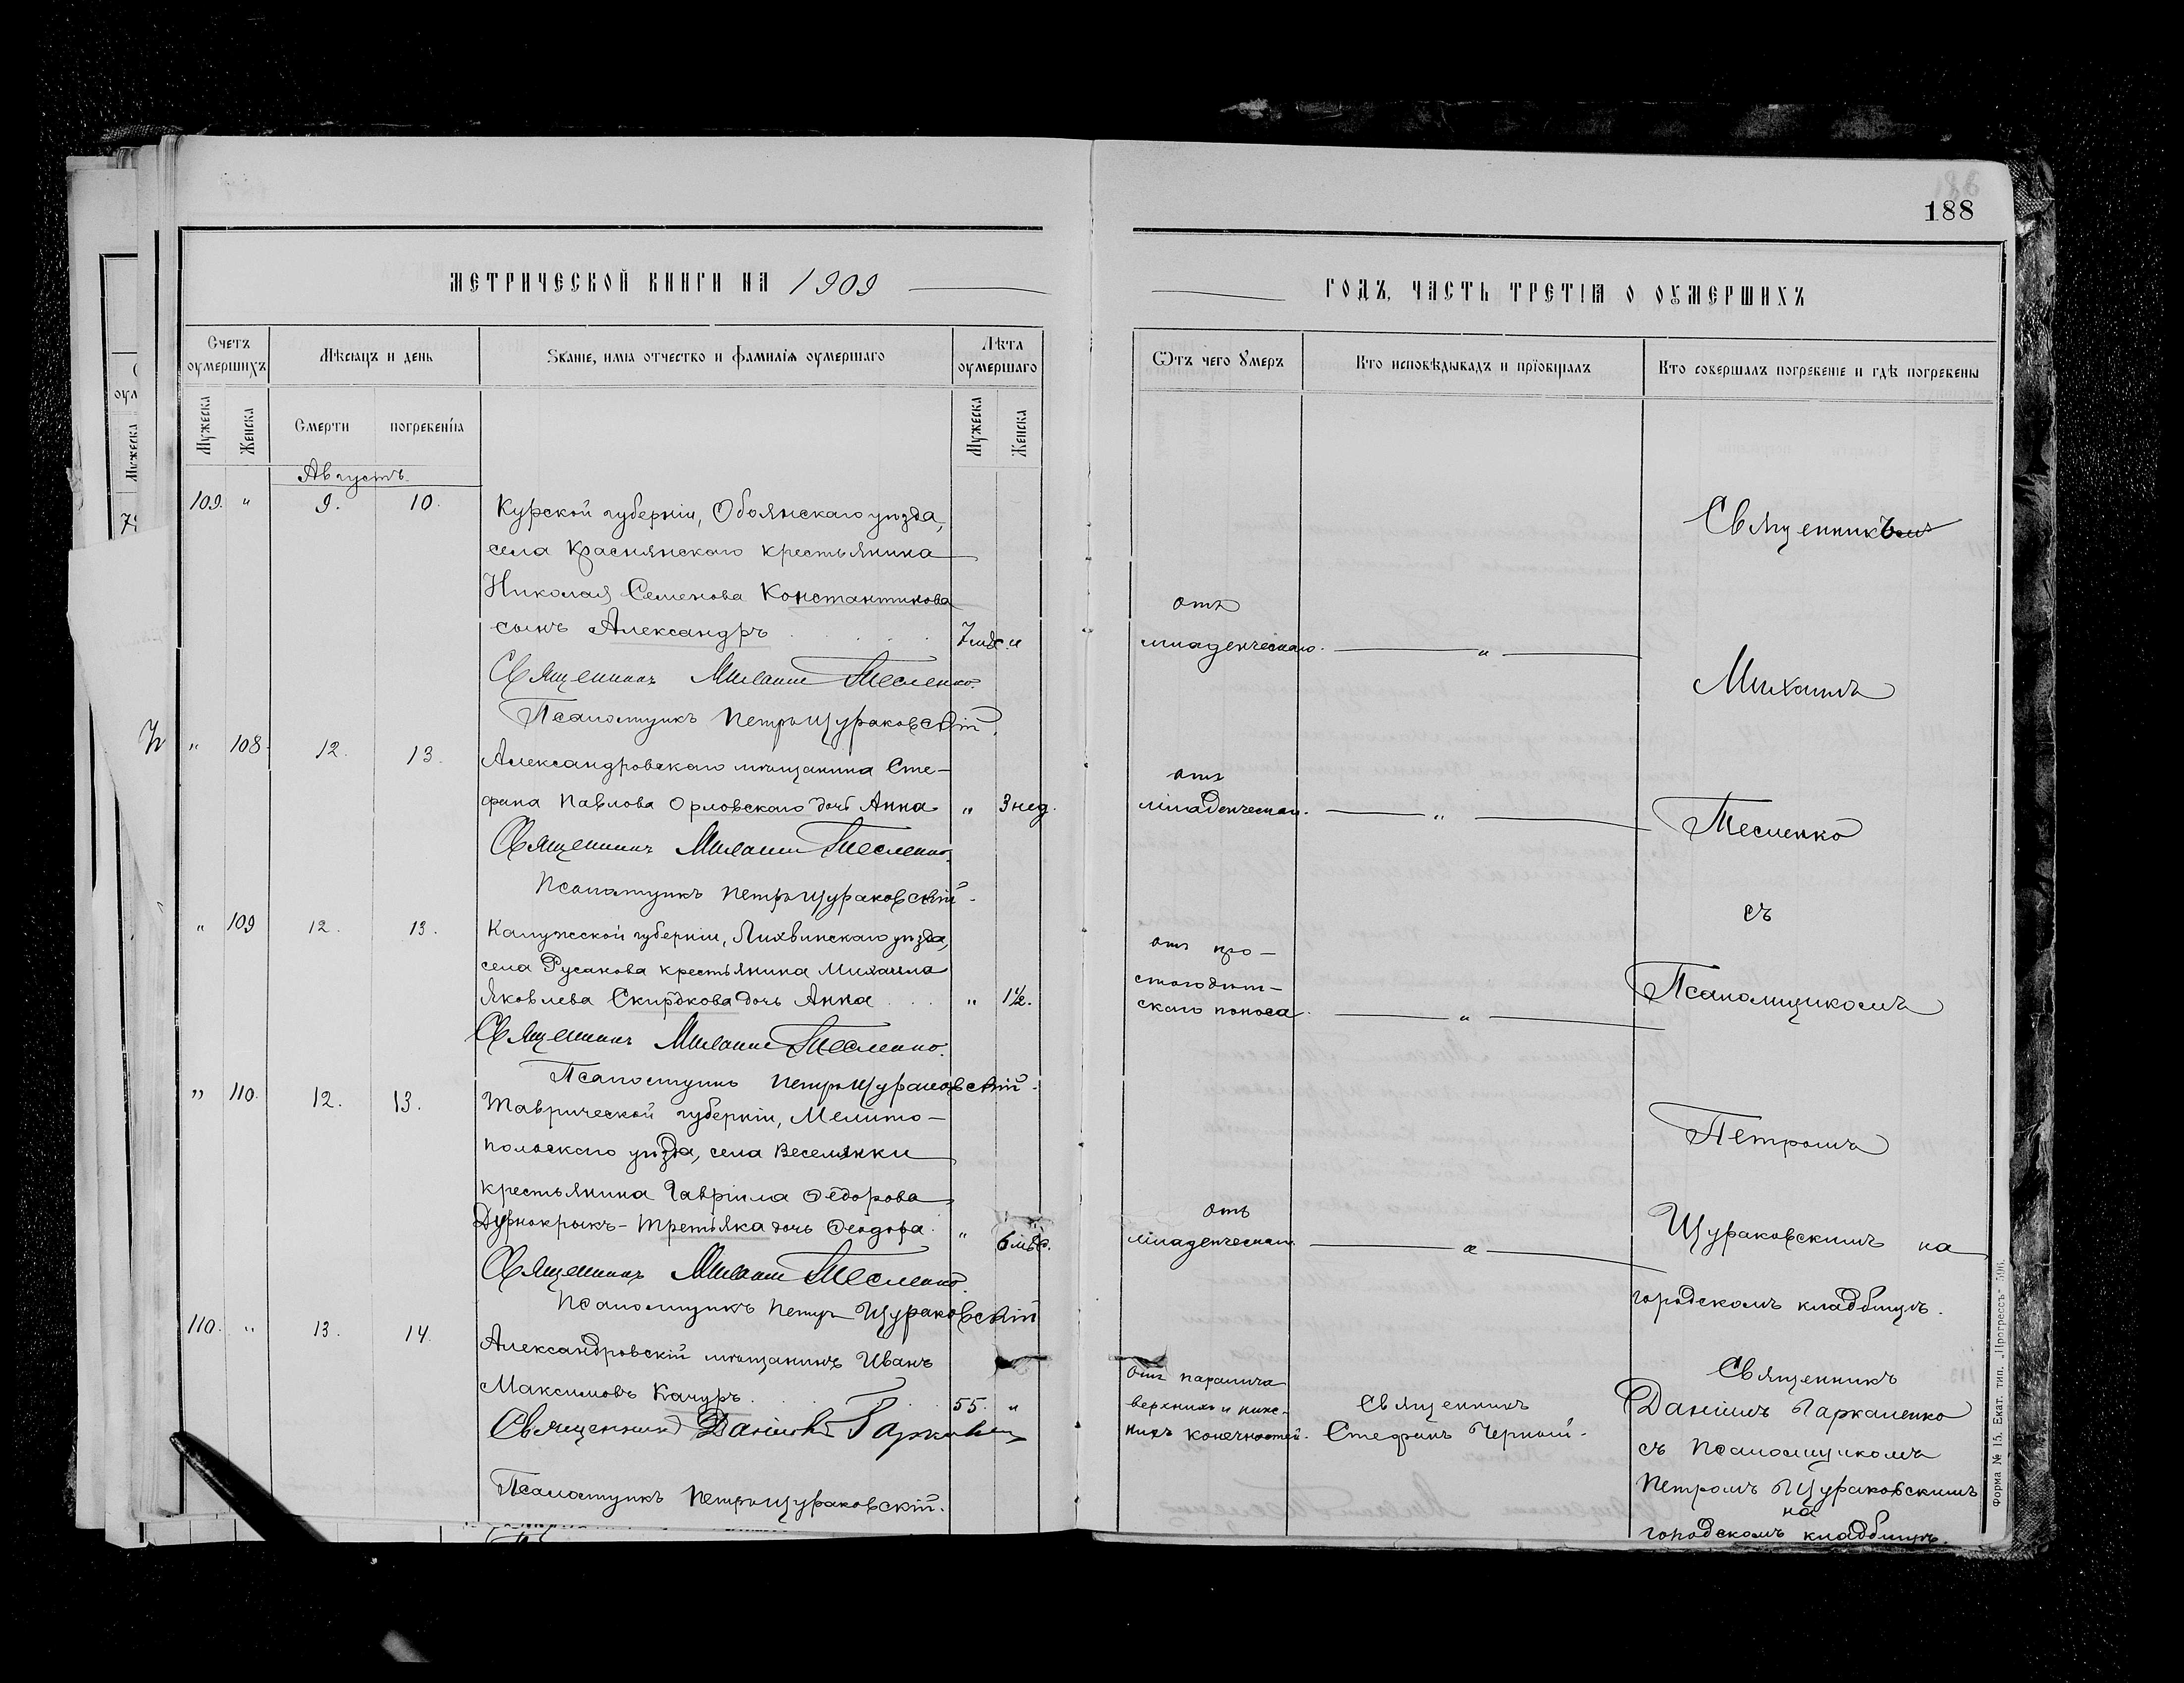 188
МЕТРИЧЕСКОЙ КНИГИ НА 1909
ГОДЪ, ЧАСТЬ ТРЕТІѦ О ОУМЕРШИХЪ
Счетъ оумершихъ
Мѣсяцъ и день
Званіе, имѧ отчество и фамиліѧ оумершаго
Лѣта оумершаго
Ѿтъ чего Умеръ
Кто исповѣдывалъ и пріобщалъ
Кто совершалъ погребеніе и гдѣ погребены
Мужеска
Женска
Смерти
погребеніѧ
Мужеска
Женска
Августъ
109. " 9. 10.
Курской губерніи, Обоянскаго уѣзда,
села Краснянскаго крестьянина
Николая Семенова Константинова
сынъ Александръ 7 мѣс. "
отъ
младенческаго. "
Священникъ Михаилъ Тесленко.
Псаломщикъ Петръ Щураковскій.
" 108. 12. 13.
Александровскаго мѣщанина Сте-
фана Павлова Орловскаго дочь Анна " 3 нед.
отъ
младенческаго. "
Священникъ Михаилъ Тесленко.
Псаломщикъ Петръ Щураковскій.
" 109 12. 13.
Калужской губерніи, Лихвинскаго уѣзда,
села Русанова крестьянина Михаила
Яковлева Скирдкова дочь Анна " 1½.
отъ
скаго поноса. "
Священникъ Михаилъ Тесленко.
Псаломщикъ Петръ Щураковскій.
" 110. 12. 13.
Таврической губерніи, Мелито-
польскаго уѣзда, села Веселянки
крестьянина Гавріила Ѳедорова
Дурнокрыкъ-Третьяка дочь Ѳеодора " 6 мѣс.
отъ
младенческаго. "
Священникъ Михаилъ Тесленко.
Псаломщикъ Петръ Щураковскій
Священникъ
Михаилъ
Тесленко
съ
Псаломщикомъ
Петромъ
Щураковскимъ на
городскомъ кладбищѣ.
110. " 13. 14.
Александровскій мѣщанинъ Иванъ
Максимовъ Качуръ 55. "
отъ паралича
верхнихъ и ниж-
нихъ конечностей.
Священникъ
Стефанъ Черный.
Священникъ
Даніилъ Гаркаленко
съ псаломщикомъ
Петромъ Щураковскимъ
на
городскомъ кладбищѣ.
Священникъ Даніилъ
Псаломщикъ Петръ Щураковскій.
Форма № 15. Екат. тип. „Прогрессъ"